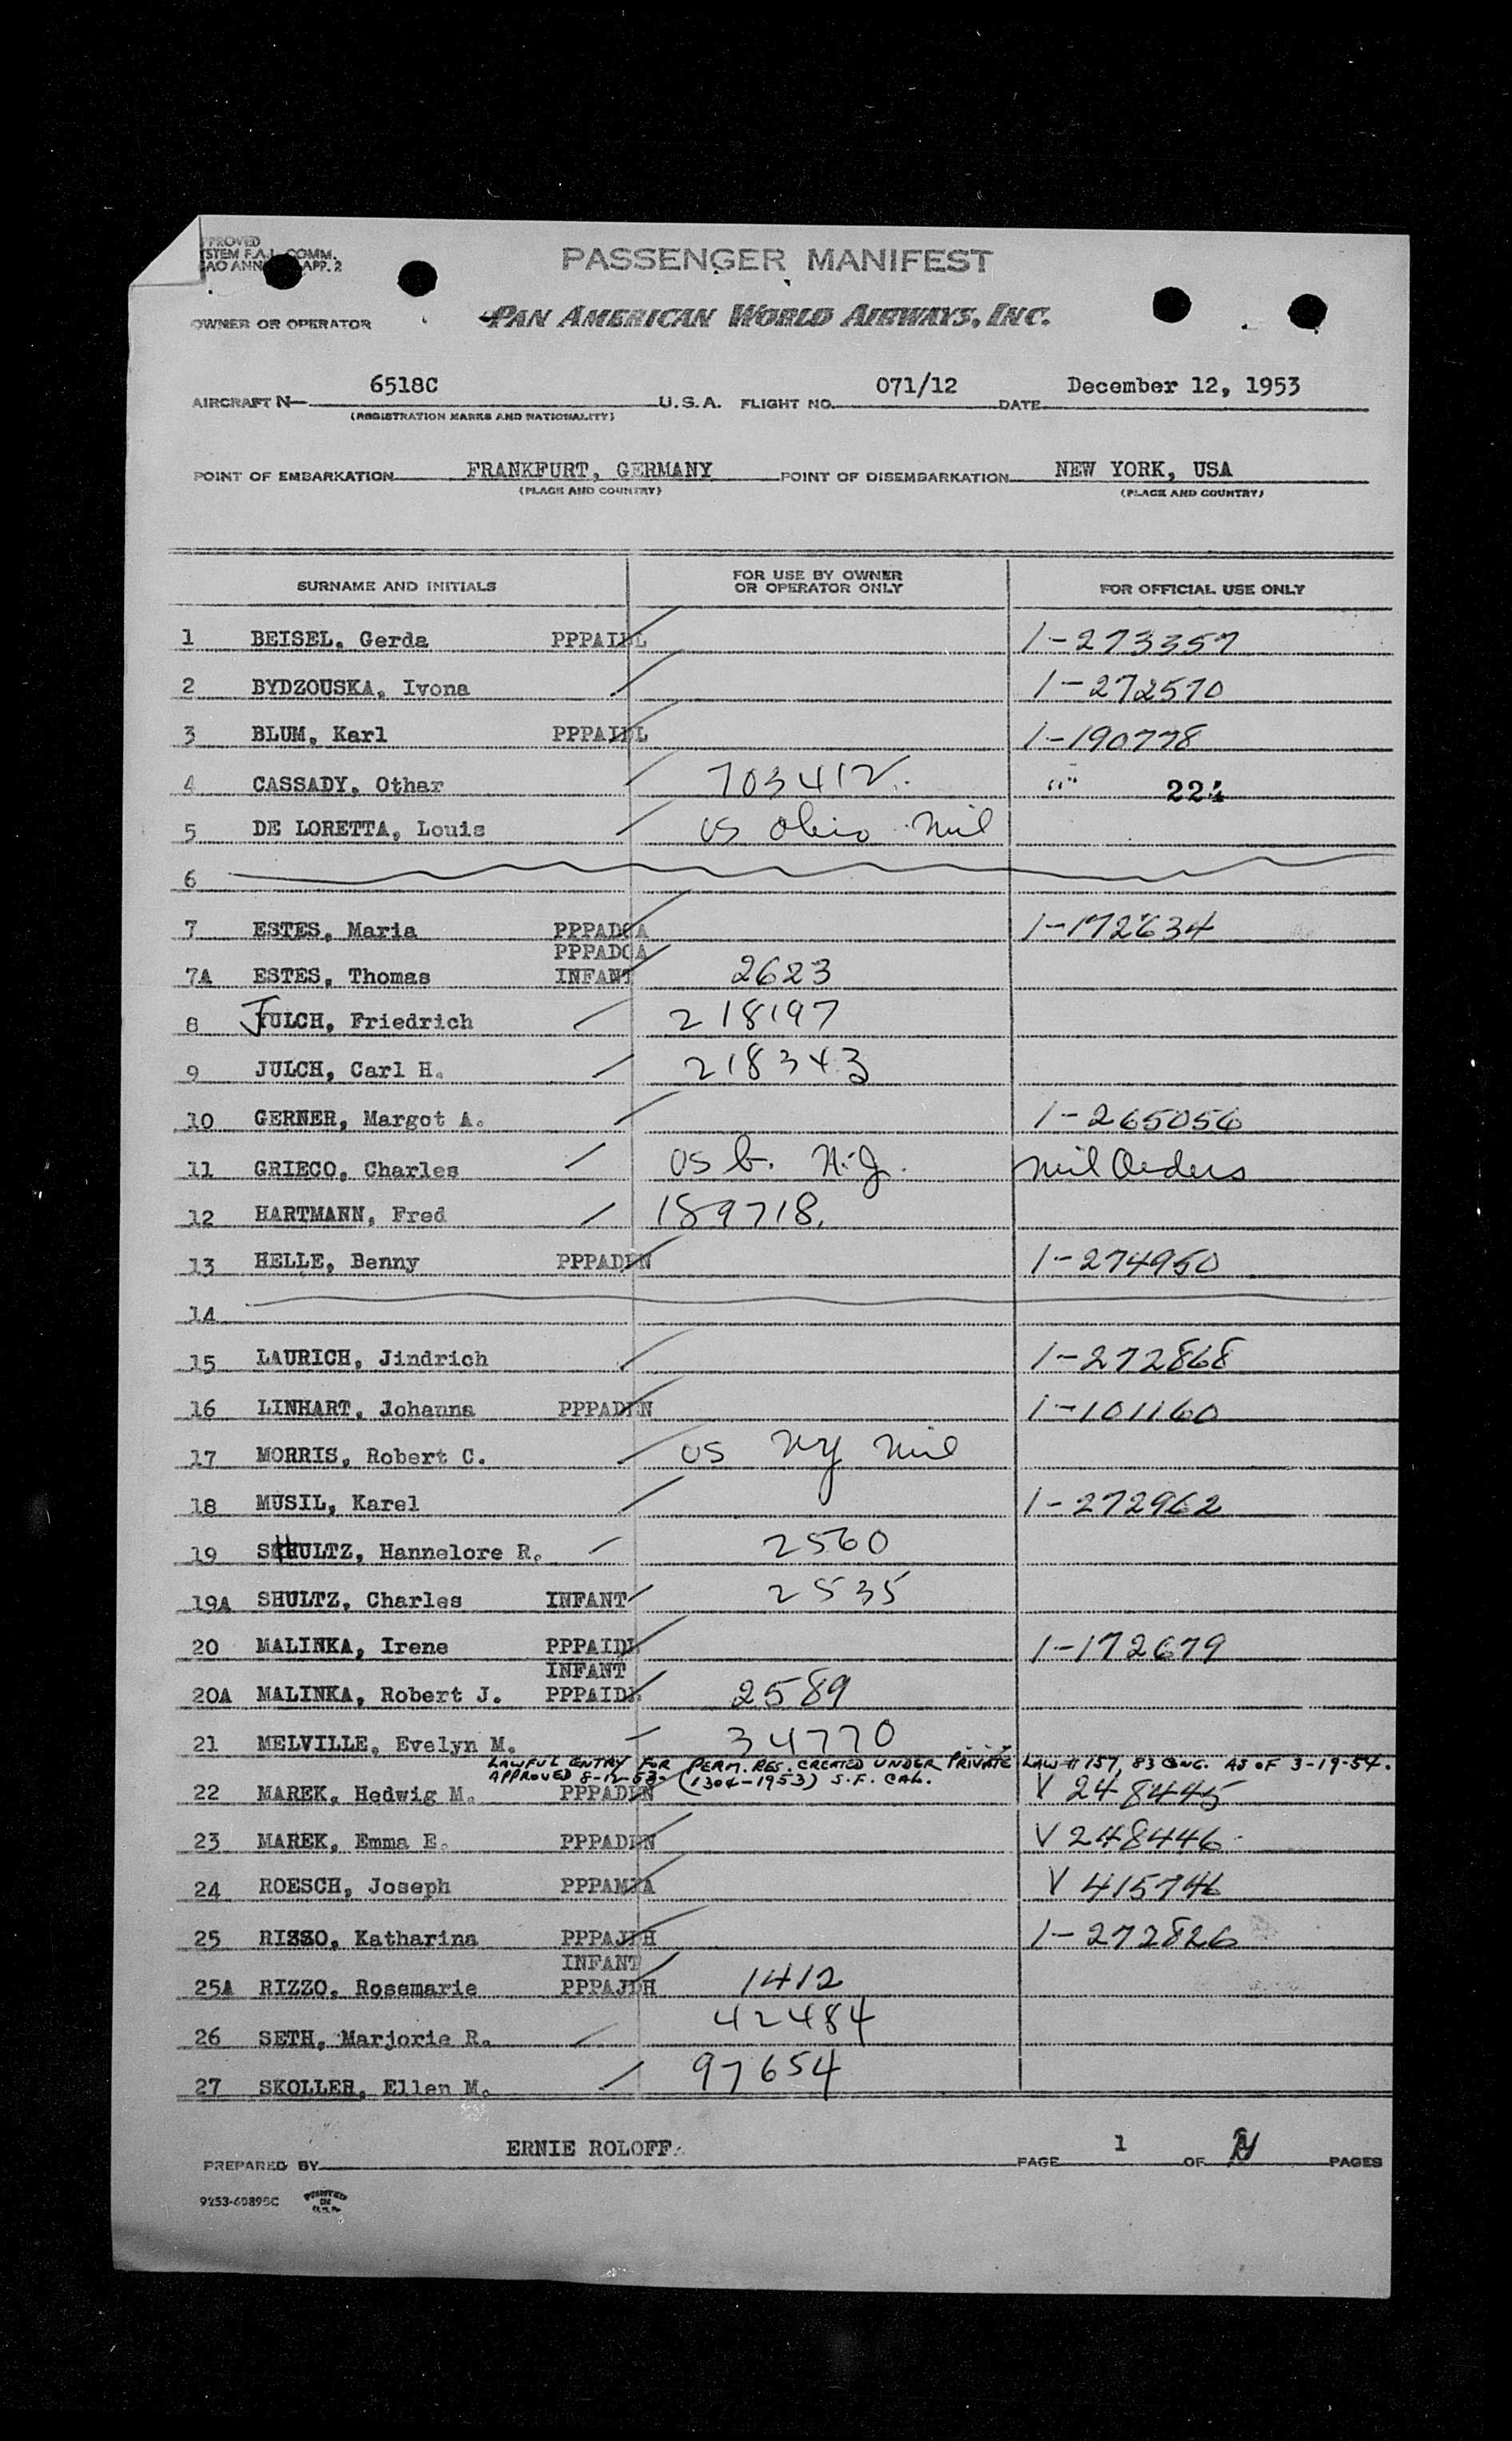 PPROVED
STEM F.A.L. COMM.
AO ANN APP. 2
PASSENGER MANIFEST
OWNER OR OPERATOR PAN AMERICAN WORLD AIRWAYS, INC.
AIRCRAFT N- 6518C U.S.A. FLIGHT NO. 071/12 DATE December 12, 1953
(REGISTRATION MARKS AND NATIONALITY)
POINT OF EMBARKATION FRANKFURT, GERMANY POINT OF DISEMBARKATION NEW YORK, USA
(PLACE AND COUNTRY) (PLACE AND COUNTRY)
SURNAME AND INITIALS FOR USE BY OWNER OR OPERATOR ONLY FOR OFFICIAL USE ONLY
1 BEISEL, Gerda PPPAIDL 1-273357
2 BYDZOUSKA, Ivona 1-272570
3 BLUM, Karl PPPAIDL 1-190778
4 CASSADY, Othar 703412. "" 224
5 DE LORETTA, Louis US Ohio Mil
6
7 ESTES, Maria PPPADOA 1-172634
PPPADOA
7A ESTES, Thomas INFANT 2623
8 JULCH, Friedrich 218197
9 JULCH, Carl H. 218343
10 GERNER, Margot A. 1-265056
11 GRIECO, Charles US b. N.J. Mil Orders
12 HARTMANN, Fred 189718.
13 HELLE, Benny PPPADPN 1-274950
14
15 LAURICH, Jindrich 1-272868
16 LINHART, Johanna PPPADPN 1-101160
17 MORRIS, Robert C. US NY Mil
18 MUSIL, Karel 1-272962
19 SHULTZ, Hannelore R. 2560
19A SHULTZ, Charles INFANT 2535
20 MALINKA, Irene PPPAIDL 1-172679
INFANT
20A MALINKA, Robert J. PPPAIDL 2589
21 MELVILLE, Evelyn M. 34770
LAWFUL ENTRY FOR PERM. RES. CREATED UNDER PRIVATE LAW # 157, 83 CONG. AS OF 3-19-54.
APPROVED 8-12-53. (1304-1953) S.F. CAL.
22 MAREK, Hedwig M. PPPADPN V 248445
23 MAREK, Emma E. PPPADPN V 248446
24 ROESCH, Joseph V 415746
25 RIZZO, Katharina PPPAJDH 1-272826
INFANT
25A RIZZO, Rosemarie PPPAJDH 1412
26 SETH, Marjorie R. 42484
27 SKOLLER, Ellen M. 97654
PREPARED BY ERNIE ROLOFF PAGE 1 OF PAGES
9253-60895C PRINTED IN U.S.A.